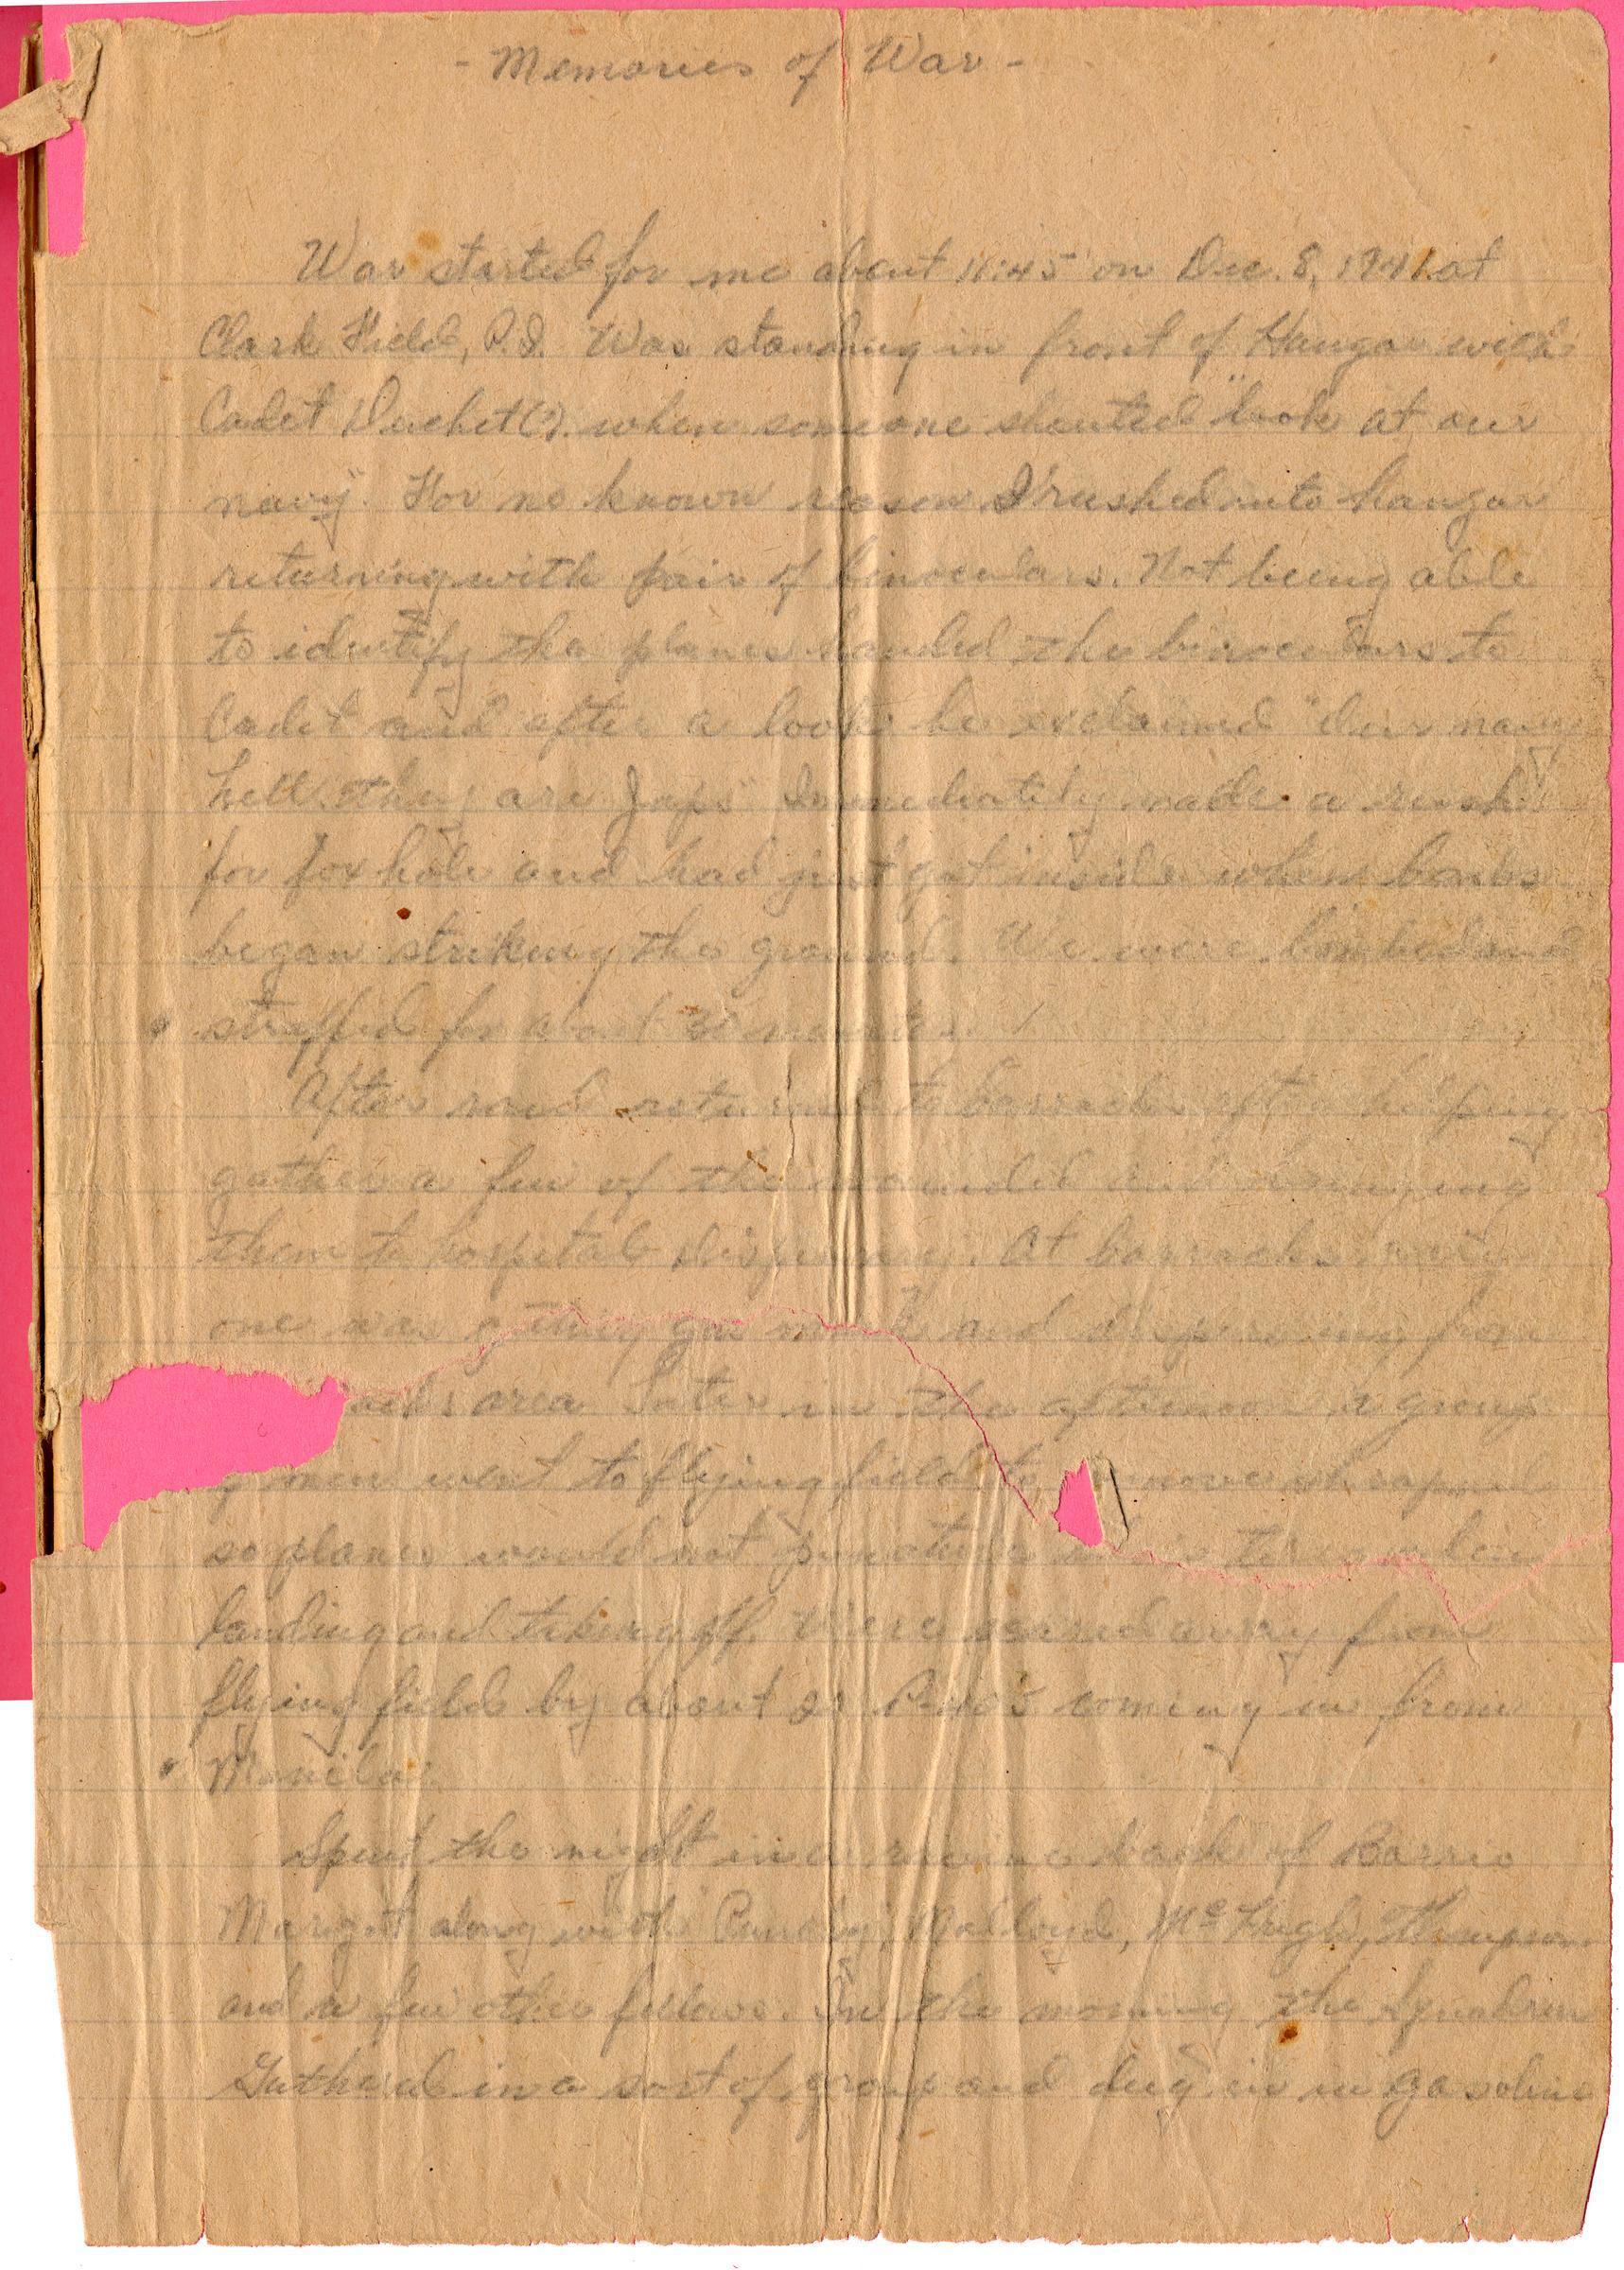 - Memories of War -
War started for me about 11:45 on Dec. 8, 1941 at
Clark Field, P.I. Was standing in front of Hangar with
Cadet (?). when someone shouted "look at our
navy". For no known reason I rushed into hangar
returning with pair of binoculars. Not being able
to identify the planes handed the binoculars to
Cadet and after a look he exclaimed "Our navy
hell, they are Japs" Immediately made a rush
for fox hole and had just got inside when bombs
began striking the ground. We were bombed and
straffed for about 30 minutes.
After raid returned to barracks after helping
gather a few of the wounded and bringing
them to hospital dispensary. At barracks every
one was getting gas mask and dispersing from
area Later in the afternoon a group
of men went to flying field to remove shrapnel
so planes would not puncture tires when
landing and taking off. Were scared away from
flying field by about coming in from
Manila.
Spent the night in a ravine back of Barrio
Margot along with McHugh, Thompson
and a few other fellows. In the morning the Squadron
Gathered in a sort of group and dug in in gasoline